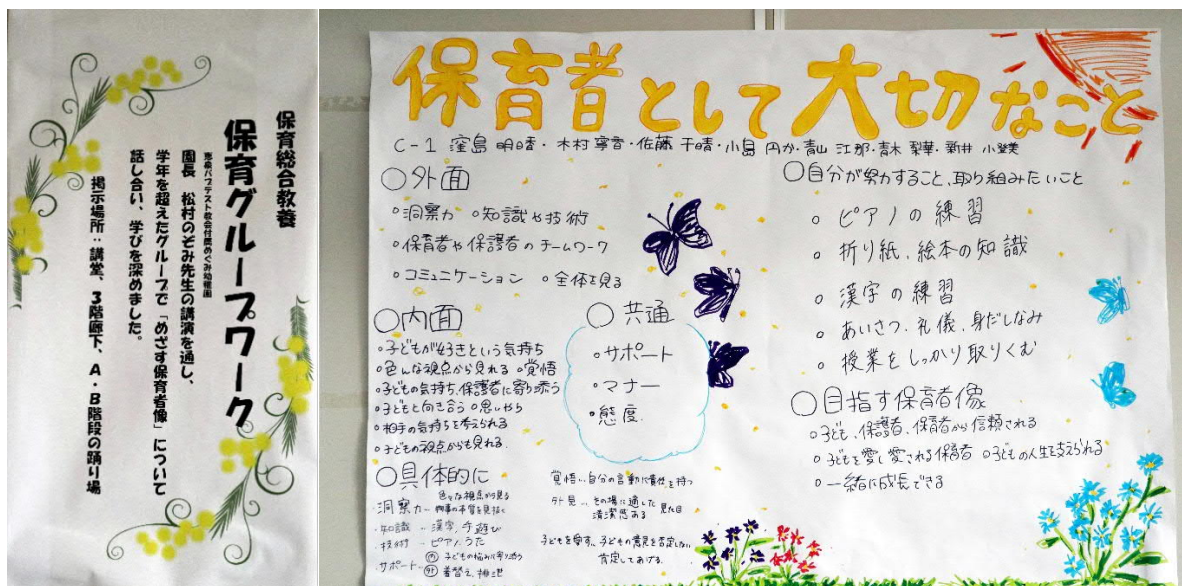 保育総合教養
保育グループワーク
恵泉バプテスト教会付属めぐみ幼稚園
園長　松村のぞみ先生の講演を通し、
学年を超えたグループで「めざす保育者像」について
話し合い、学びを深めました。
掲示場所：講堂、3階廊下、A・B階段の踊り場
保育者として大切なこと
C-1 窪島 明晴・木村 寧音・佐藤 千晴・小島 円か・青山 江那・青木 梨華・新井 小登美
○外面
・洞察力 ・知識や技術
・保育者や保護者のチームワーク
・コミュニケーション ・全体を見る
○内面
・子どもが好きという気持ち
・色んな視点から見れる ・覚悟
・子どもの気持ち、保護者に寄り添う
・子どもと向き合う ・思いやり
・相手の気持ちを考えられる
・子どもの視点からも見れる
○共通
・サポート
・マナー
・態度
○具体的に
・洞察力… 色々な視点から見る
物事の本質を見抜く
・知識… 漢字、手遊び
・技術… ピアノ、うた
・サポート… 内 子どもの悩みに寄り添う
外 着替え、排泄
覚悟… 自分の言動に責任を持つ
外見… その場に適した
清潔感ある 見た目
子どもを愛す… 子どもの意見を否定しない
肯定してあげる。
○自分が努力すること、取り組みたいこと
・ピアノの練習
・折り紙、絵本の知識
・漢字の練習
・あいさつ、礼儀、身だしなみ
・授業をしっかり取りくむ
○目指す保育者像
・子ども、保護者、保育者から信頼される
・子どもを愛し愛される保育者 ・子どもの人生を支えられる
・一緒に成長できる